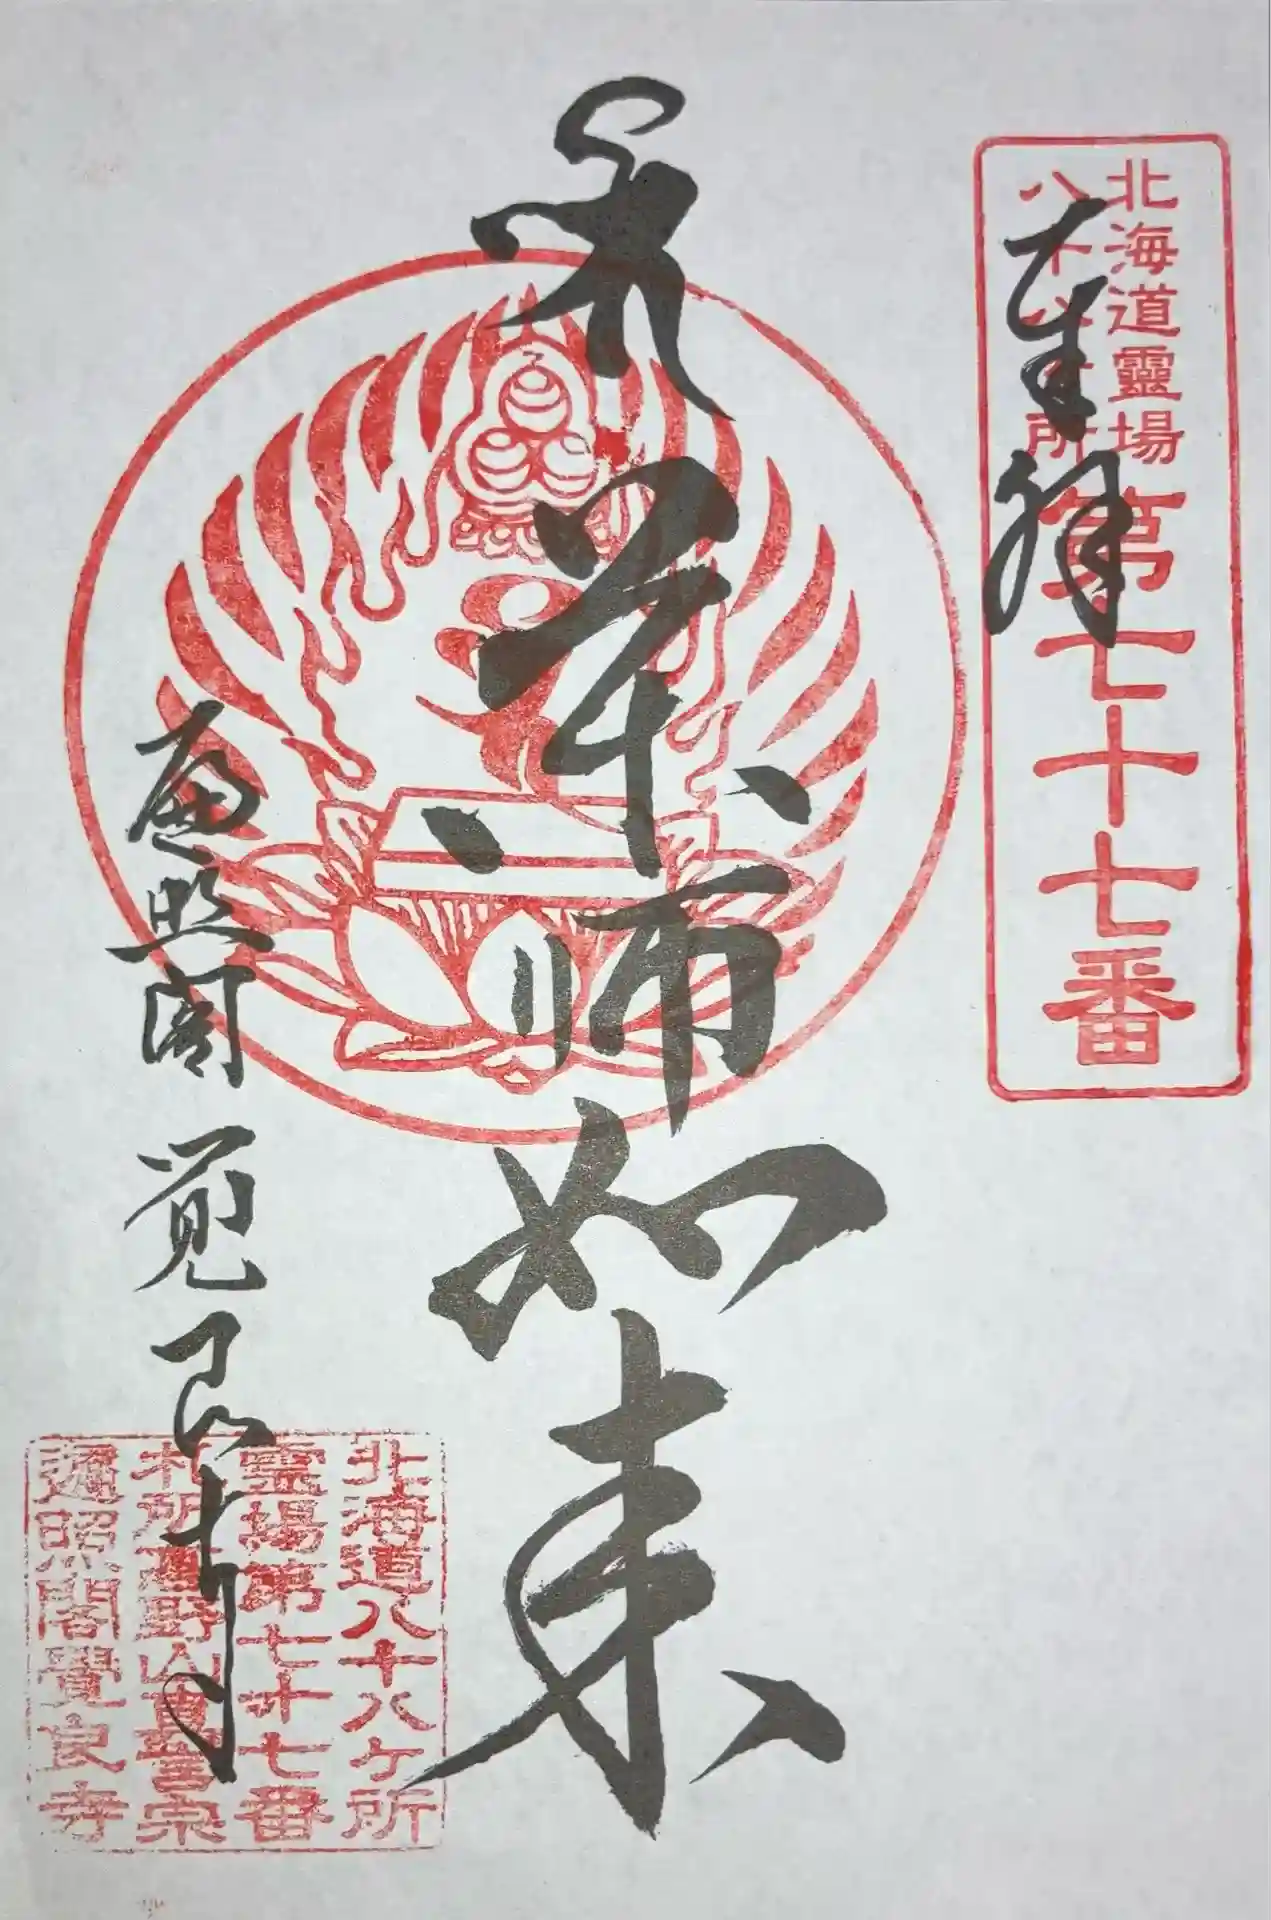 北海道靈場
八十八ヶ所
第七十七番
奉拜
薬師如来
遍照閣 覚良寺
北海道八十八ケ所
霊場第七十七番
札所高野山真言宗
遍照閣覺良寺